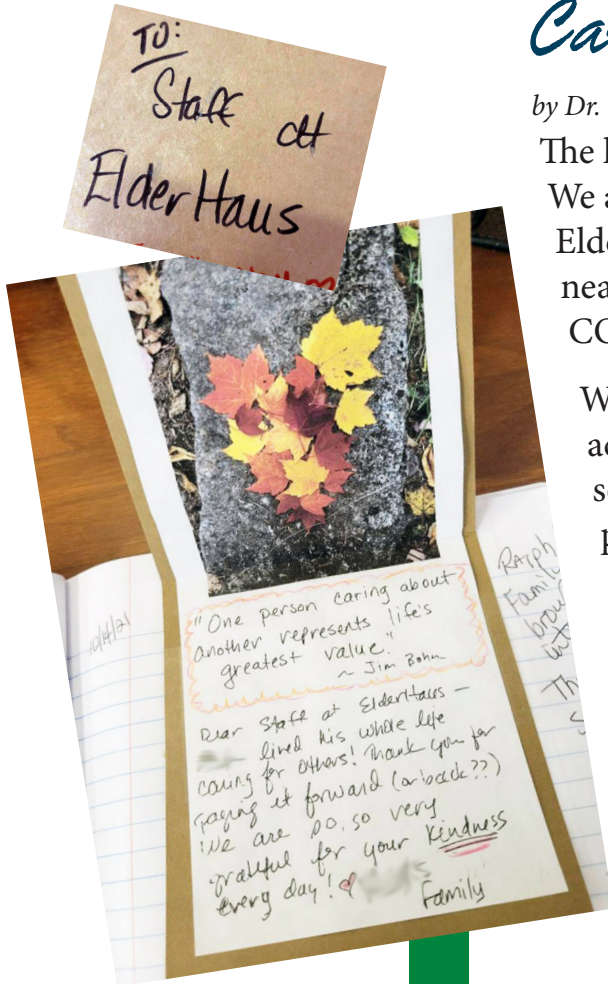 TO:
Staff at
ElderHaus
Ca
by Dr.
The
We a
Elde
nea
CO
W
ac
se
p
"One person caring about
another represents life's
greatest value."
~ Jim Bohn
Dear Staff at ElderHaus –
lived his whole life
caring for others! Thank you for
paying it forward (or back??)
We are so, so very
grateful for your Kindness
every day! ♡
Family
10/14/21
Ralph
Family
brou
into
Th
S